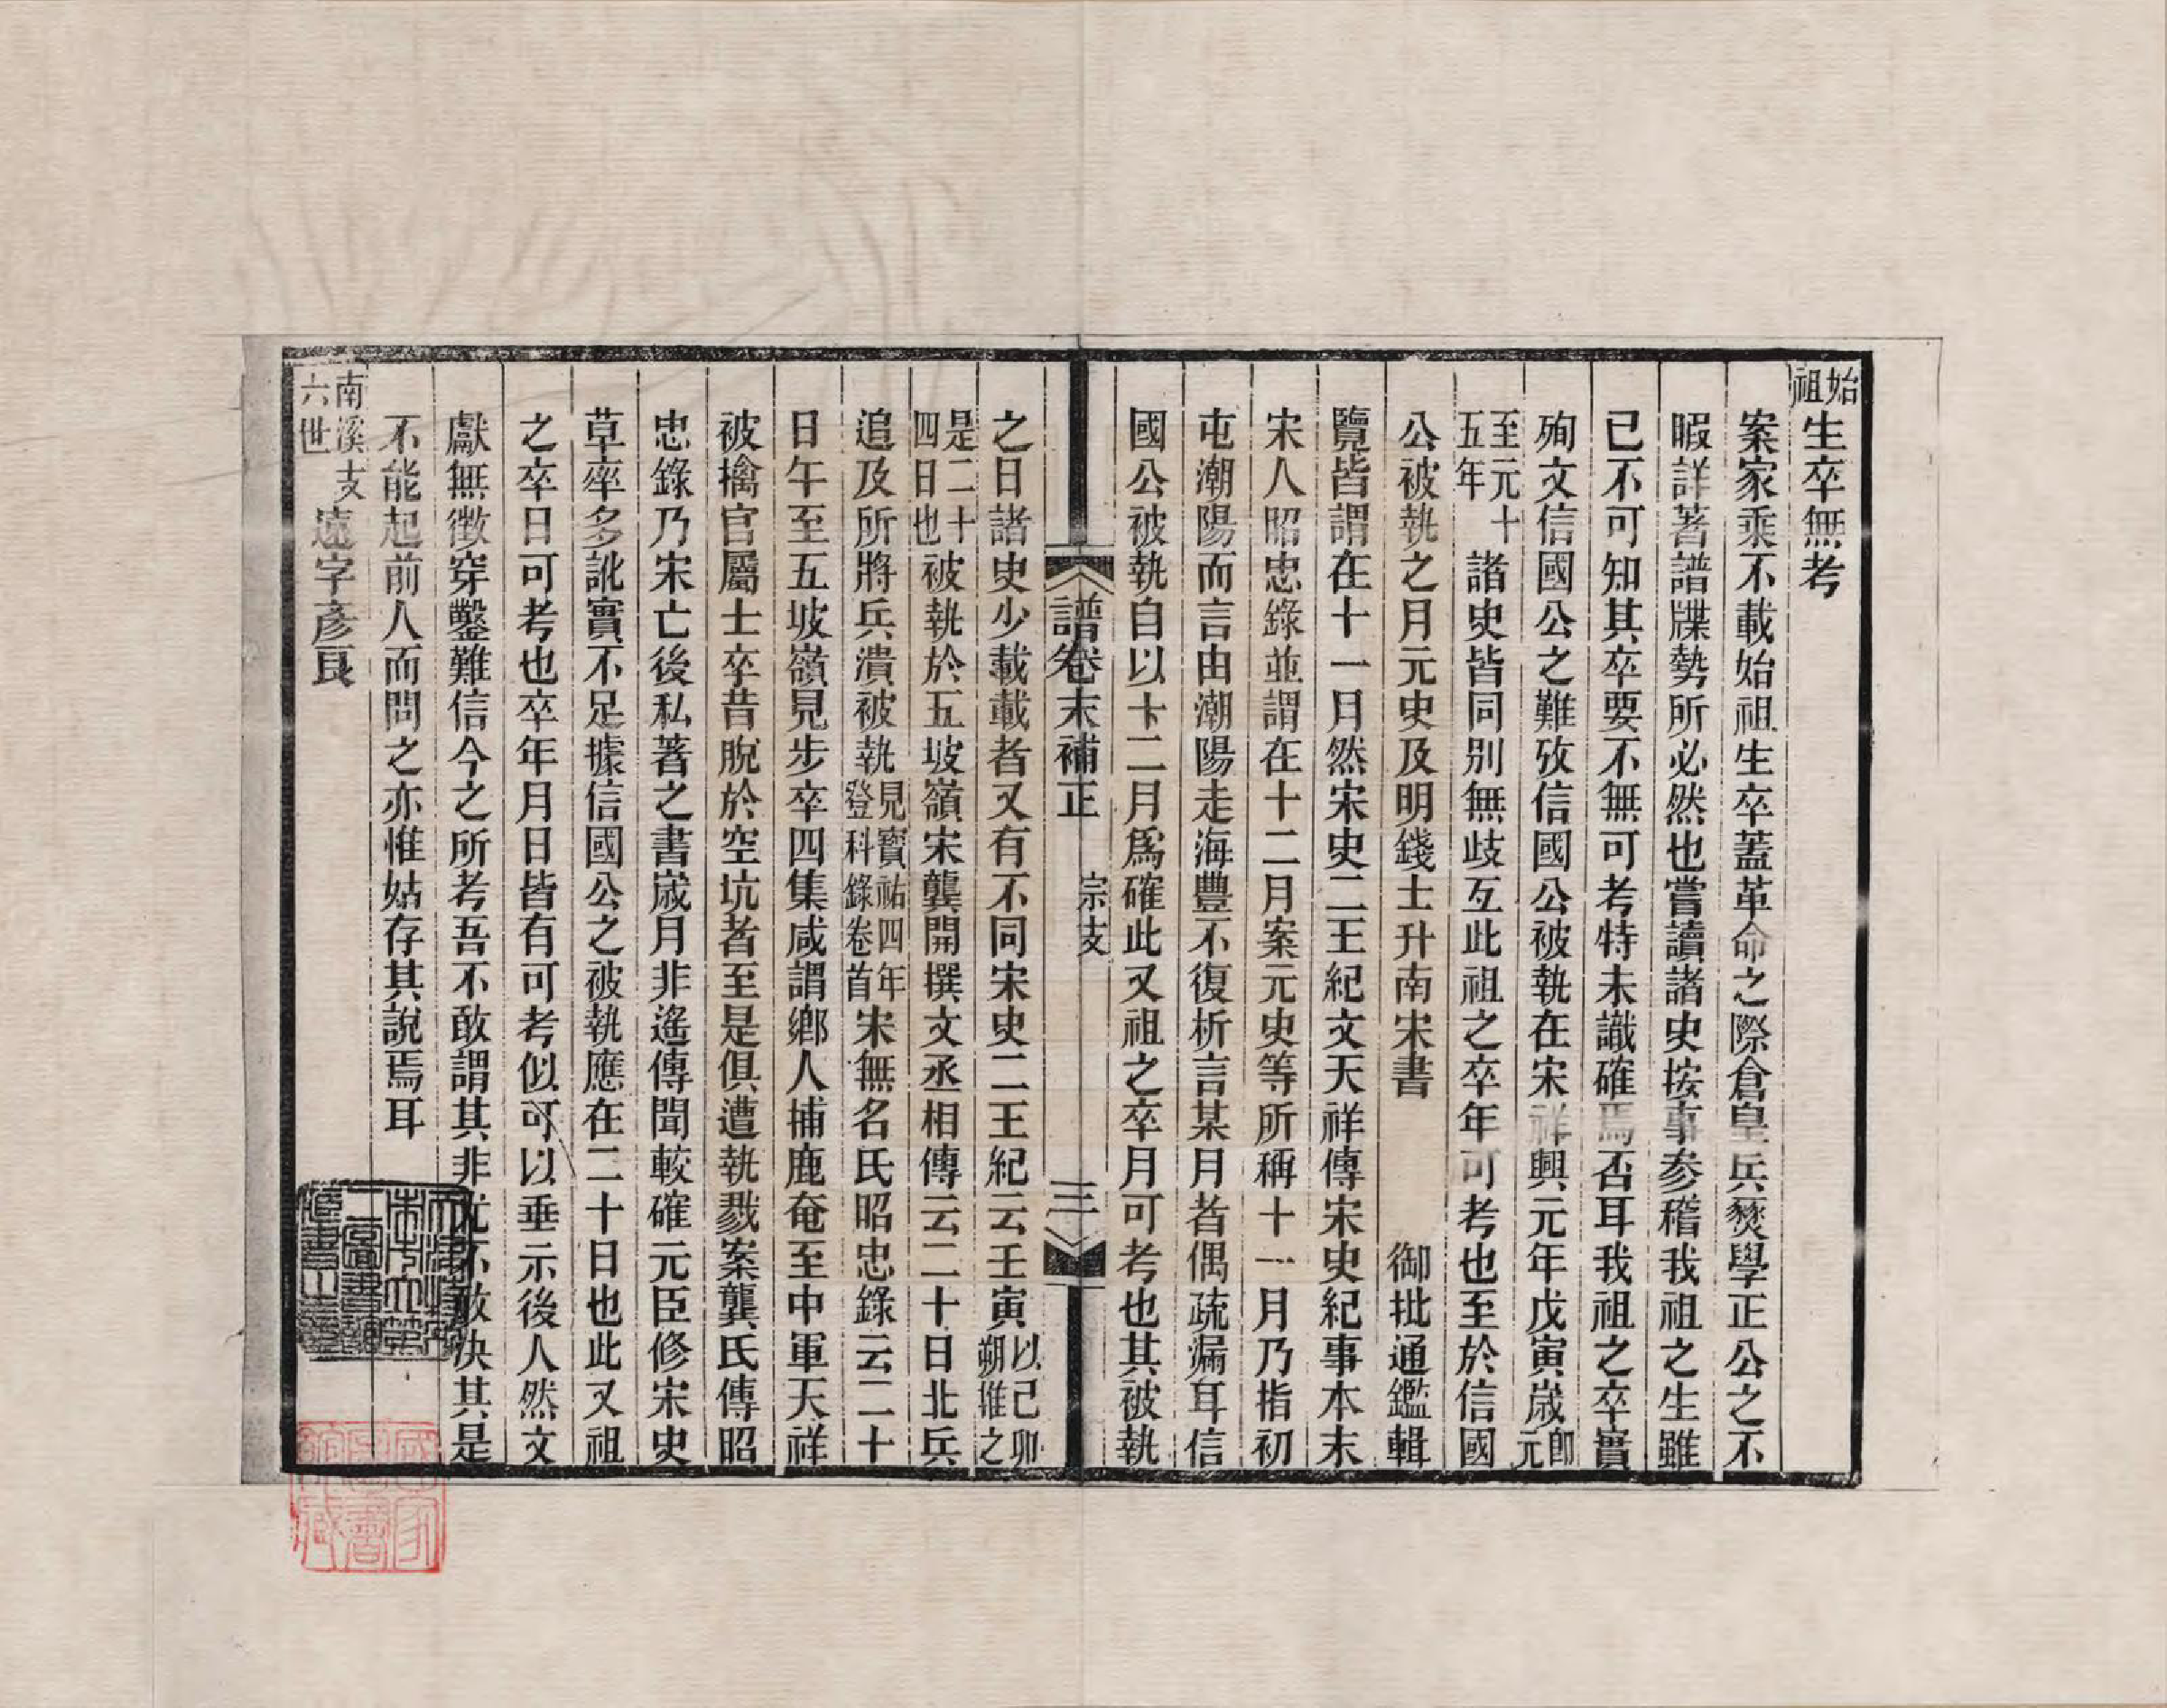 始祖生卒無考
案家乘不載始祖生卒蓋革命之際倉皇兵燹學正公之不
暇詳著譜牒勢所必然也嘗讀諸史按事參稽我祖之生雖
已不可知其卒要不無可考特未識確焉否耳我祖之卒實
殉文信國公之難攷信國公被執在宋祥興元年戊寅歲即元
至元十五年諸史皆同別無歧互此祖之卒年可考也至於信國
公被執之月元史及明錢士升南宋書　御批通鑑輯
覽皆謂在十一月然宋史二王紀文天祥傳宋史紀事本末
宋人昭忠錄並謂在十二月案元史等所稱十一月乃指初
屯潮陽而言由潮陽走海豐不復析言某月者偶疏漏耳信
國公被執自以十二月爲確此又祖之卒月可考也其被執
譜卷末補正　宗支　三
之日諸史少載載者又有不同宋史二王紀云壬寅以己卯朔推之
是二十四日也被執於五坡嶺宋龔開撰文丞相傳云二十日北兵
追及所將兵潰被執見寶祐四年登科錄卷首宋無名氏昭忠錄云二十
日午至五坡嶺見步卒四集咸謂鄉人捕鹿奄至中軍天祥
被擒官屬士卒昔脫於空坑者至是俱遭執戮案龔氏傳昭
忠錄乃宋亡後私著之書歲月非遙傳聞較確元臣修宋史
草率多訛實不足據信國公之被執應在二十日也此又祖
之卒日可考也卒年月日皆有可考似可以垂示後人然文
獻無徵穿鑿難信今之所考吾不敢謂其非尤不敢決其是
不能起前人而問之亦惟姑存其說焉耳
南溪支六世遠字彥良
國家圖書館藏